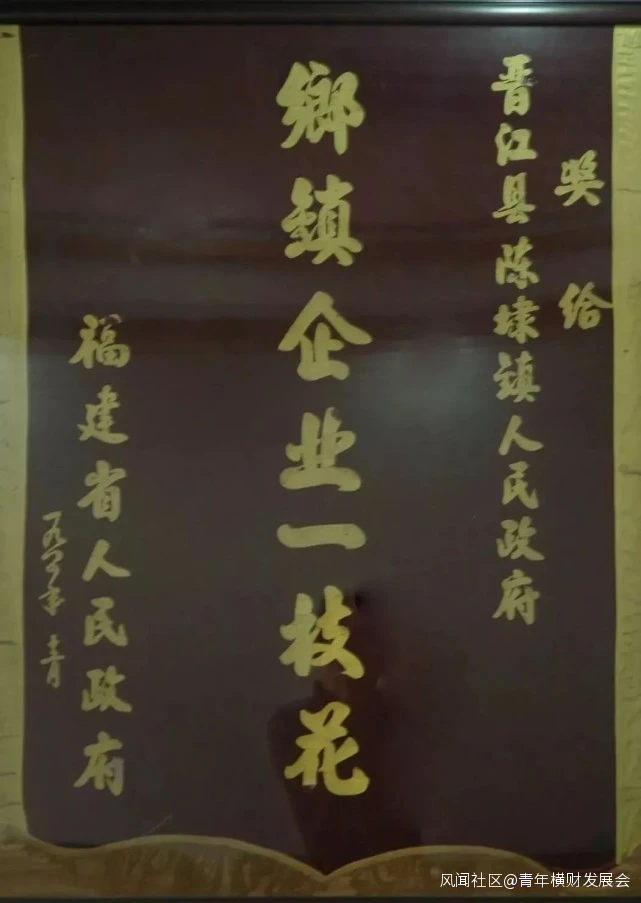 奖给
晋江县陈埭镇人民政府
鄉鎮企业一枝花
福建省人民政府
风闻社区@青年横财发展会